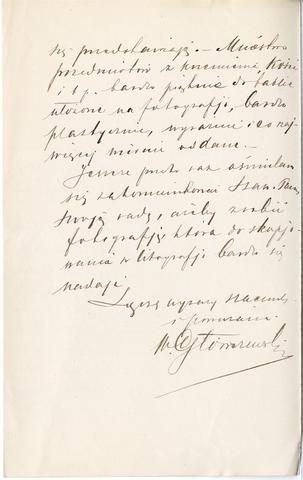 się przedstawiają. — Mnóstwo
przedmiotów z krzemienia, Kości
i t. p. bardzo pięknie do tablic
ułożone na fotografji, bardzo
plastycznie, wyraźnie i co naj-
więcej wiernie oddane. —
Jeszcze przeto raz ośmielam
się zakomunikować Szan. Panu
swoją radę, ażeby zrobić
fotografję, która do skopjo-
wania w litografji bardzo się
nadaje.
Łączę wyrazy szacunku
i poważania